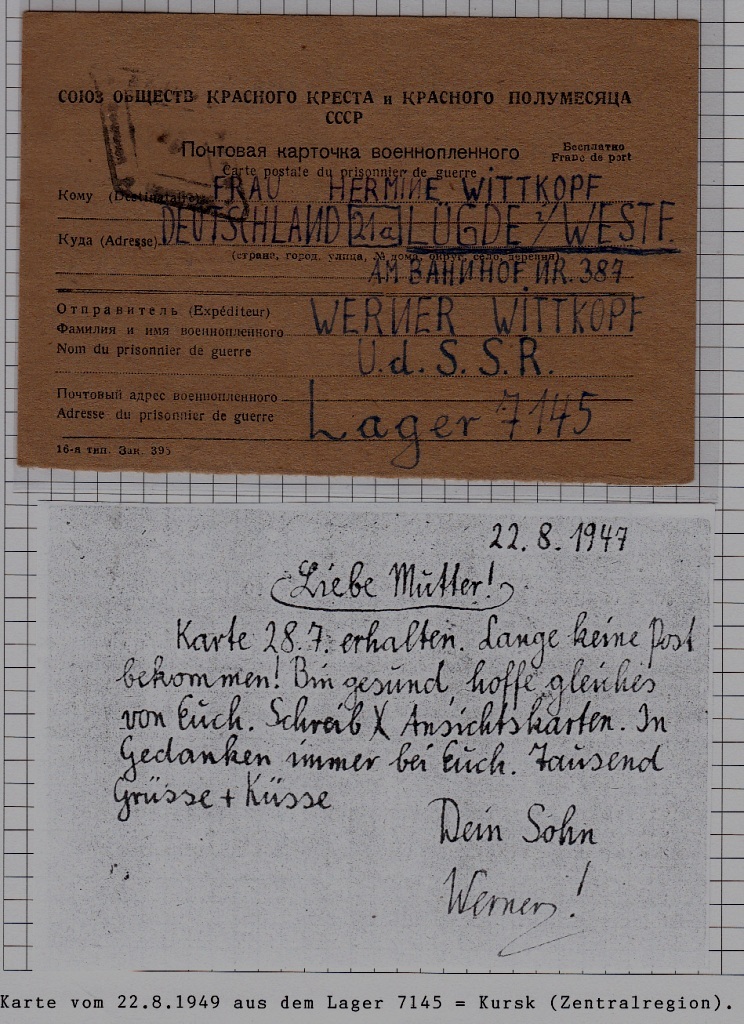 СОЮЗ ОБЩЕСТВ КРАСНОГО КРЕСТА и КРАСНОГО ПОЛУМЕСЯЦА
СССР
Почтовая карточка военнопленного
Carte postale du prisonnier de guerre
Бесплатно
Franc de port
Кому (Destinataire) FRAU HERMINE WITTKOPF
Куда (Adresse) DEUTSCHLAND 21a LÜGDE I/WESTF.
(страна, город, улица, № дома, округ, село, деревня)
AM BAHNHOF NR. 387
Отправитель (Expéditeur)
Фамилия и имя военнопленного WERNER WITTKOPF
Nom du prisonnier de guerre U.d.S.S.R.
Почтовый адрес военнопленного
Adresse du prisonnier de guerre Lager 7145
16-я тип. Зак. 395
22.8.1947
Liebe Mutter!
Karte 28.7. erhalten. Lange keine Post
bekommen! Bin gesund, hoffe gleiches
von Euch. Schreib X Ansichtskarten. In
Gedanken immer bei Euch. Tausend
Grüsse + Küsse
Dein Sohn
Werner!
Karte vom 22.8.1949 aus dem Lager 7145 = Kursk (Zentralregion).